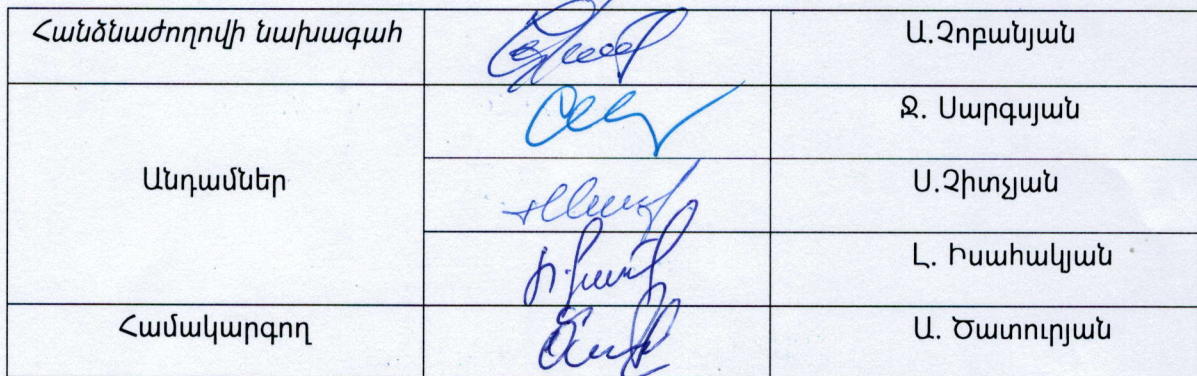 Հանձնաժողովի նախագահ
Ա.Չոբանյան
Ջ. Սարգսյան
Անդամներ
Ս.Չիտչյան
Լ. Իսահակյան
Համակարգող
Ա. Ծատուրյան